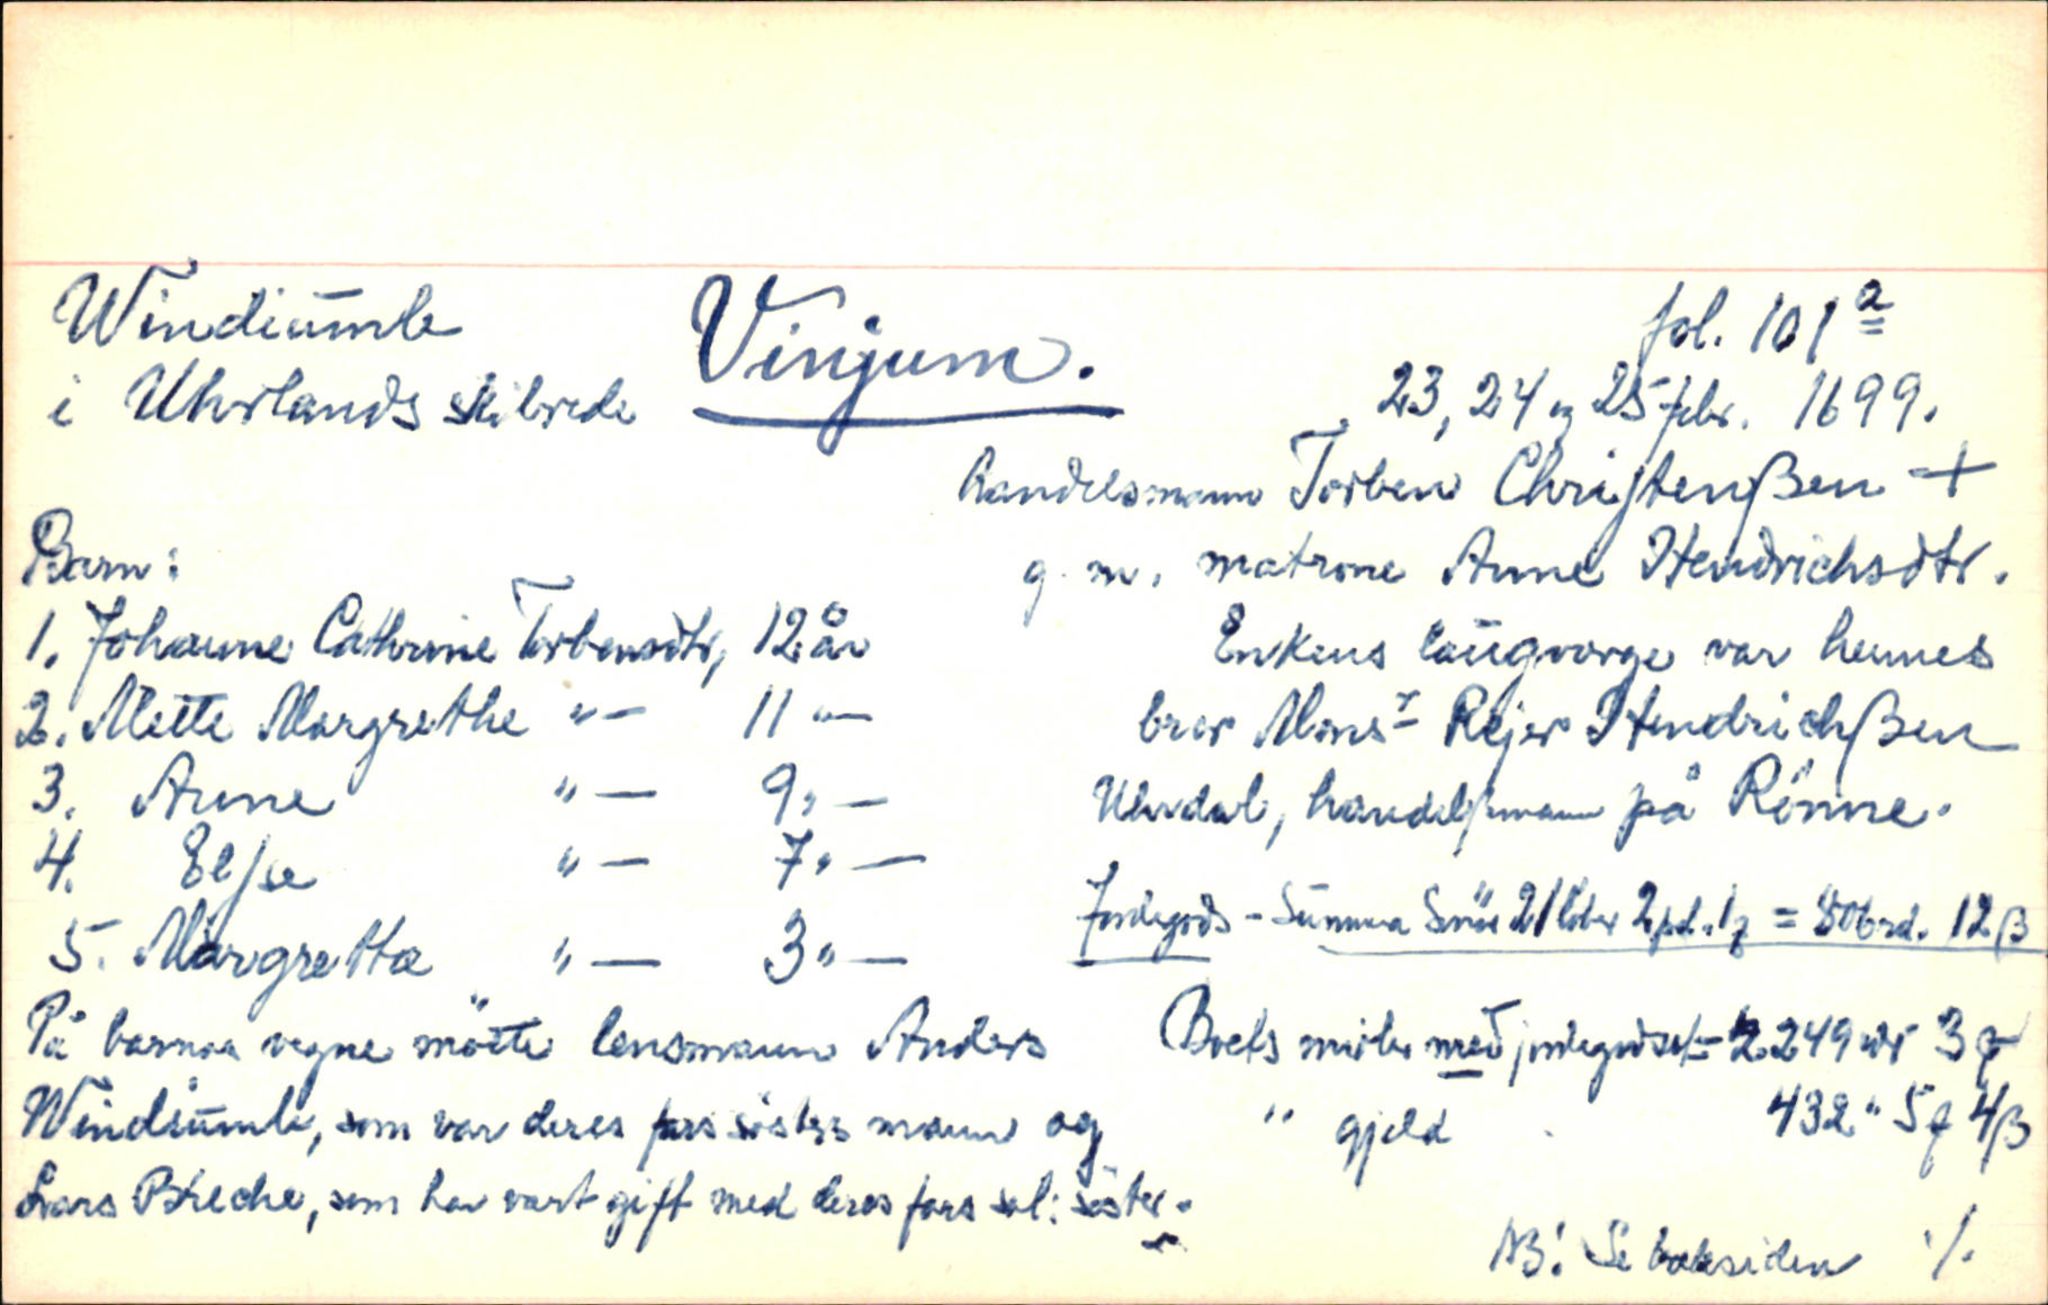 Windiümb
i Uhrlands skibrede
Vinjum.
fol. 101 a
23, 24 og 25 febr. 1699.
handelsmann Torben Christenßen +
g. m. matrone Anne Hendrichsdtr.
Barn:
1. Johanne Cathrine Torbensdtr, 12 år
2. Mette Margrethe "— 11 "—
3. Anne "— 9 "—
4. Elsse "— 7 "—
5. Margretta "— 3 "—
På barnas vegne møtte lensmann Anders
Windiümb, som var deres fars søsters mann og
Lars Breche, som har vært gift med deres fars sal: søster.
Enkens laugvorge var hennes
bror Monsr Rejer Hendrichßen
Uhrdal, handelsmann på Rönne.
Jordegods - Summa 21 løber 2 pd. 1 = 506 rd. 12 ß
Boets midler med jordegodset = 2249 rdr 3
" gjeld 432 " 5 4 ß
NB! Se baksiden ./.